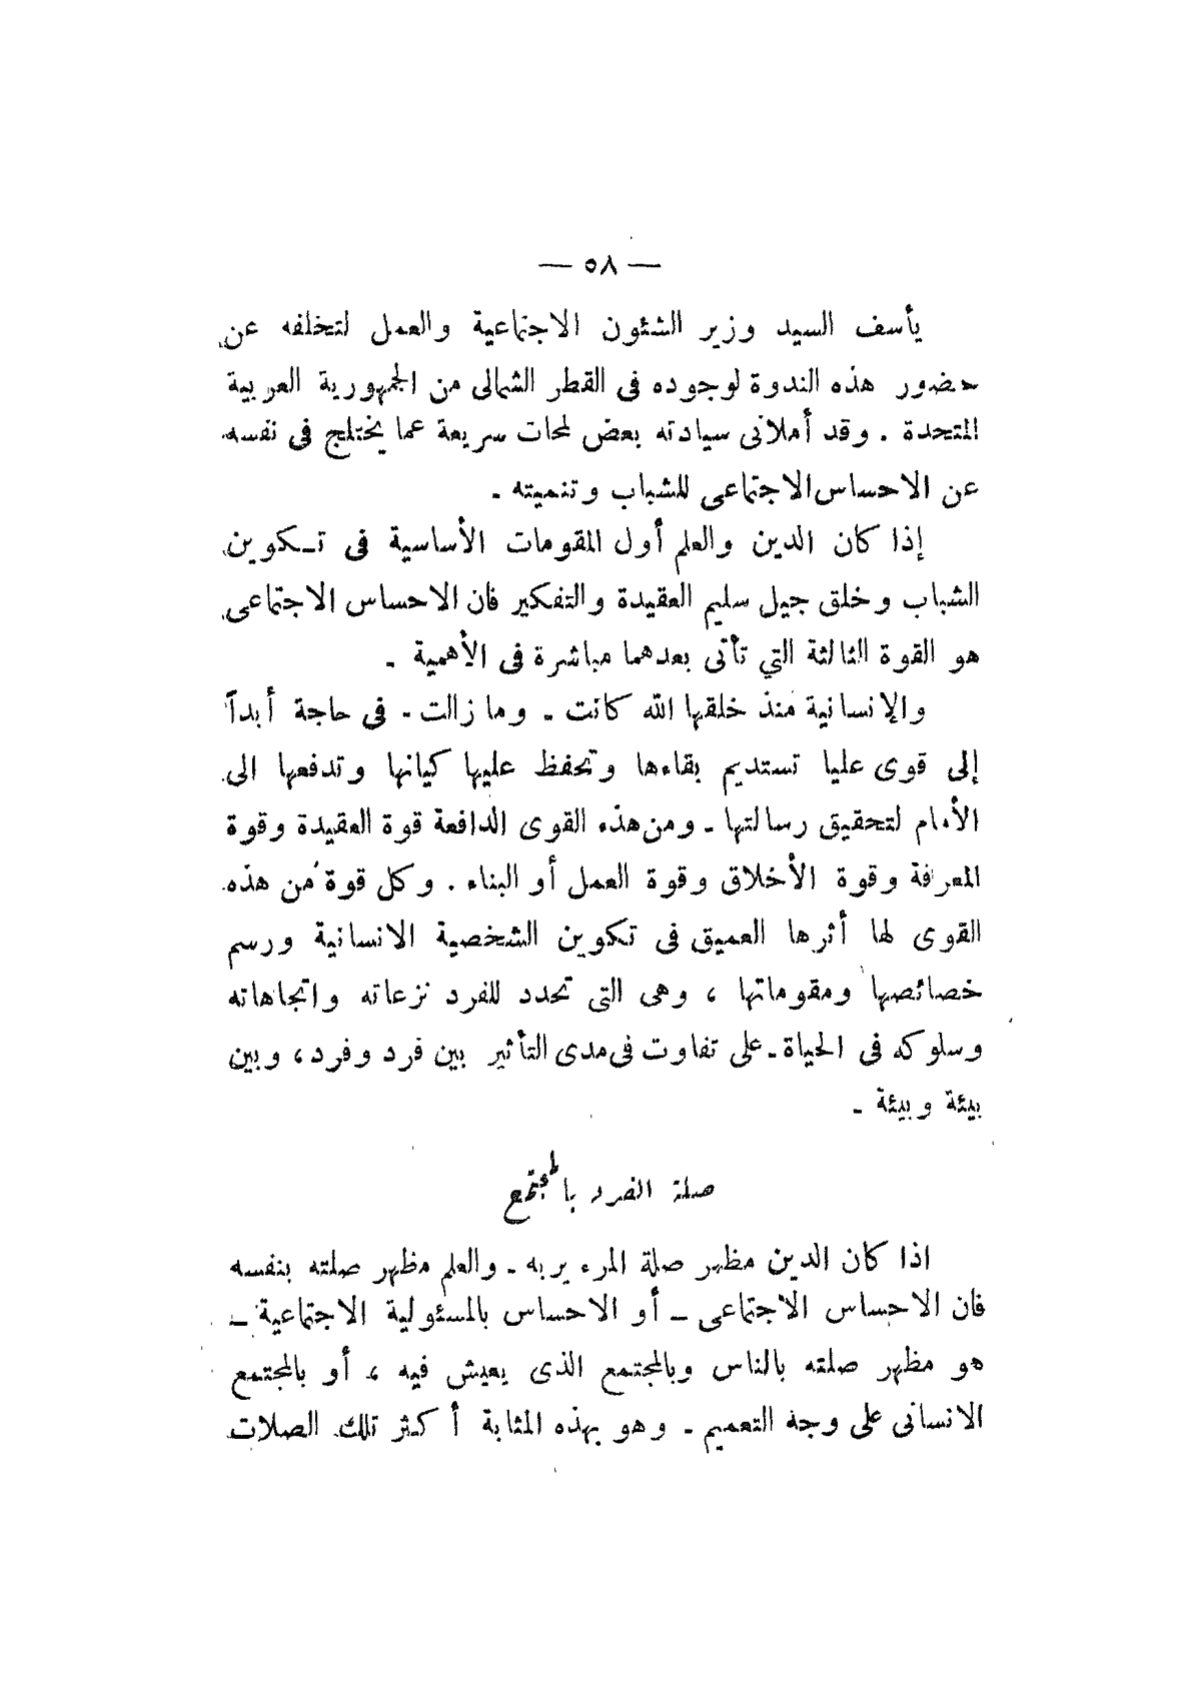 — ٥٨ —
يأسف السيد وزير الشئون الاجتماعية والعمل لتخلفه عن
حضور هذه الندوة لوجوده فى القطر الشمالى من الجمهورية العربية
المتحدة . وقد أملانى سيادته بعض لمحات سريعة عما يختلج فى نفسه
عن الاحساس الاجتماعى للشباب وتنميته .
إذا كان الدين والعلم أول المقومات الأساسية فى تـكوين
الشباب وخلق جيل سليم العقيدة والتفكير فان الاحساس الاجتماعى
هو القوة الثالثة التي تأتى بعدهما مباشرة فى الأهمية .
والإنسانية منذ خلقها الله كانت - وما زالت - فى حاجة أبداً
إلى قوى عليا تستديم بقاءها وتحفظ عليها كيانها وتدفعها الى
الأمام لتحقيق رسالتها - ومن هذه القوى الدافعة قوة العقيدة وقوة
المعرفة وقوة الأخلاق وقوة العمل أو البناء . وكل قوة من هذه
القوى لها أثرها العميق فى تكوين الشخصية الانسانية ورسم
خصائصها ومقوماتها ، وهى التى تحدد للفرد نزعاته واتجاهاته
وسلوكه فى الحياة - على تفاوت فى مدى التأثير بين فرد وفرد ، وبين
بيئة وبيئة -
صلة الفرد بالمجتمع
اذا كان الدين مظهر صلة المرء بربه - والعلم مظهر صلته بنفسه
فان الاحساس الاجتماعى – أو الاحساس بالمسئولية الاجتماعية –
هو مظهر صلته بالناس وبالمجتمع الذى يعيش فيه ، أو بالمجتمع
الانسانى على وجه التعميم - وهو بهذه المثابة أكثر تلك الصلات